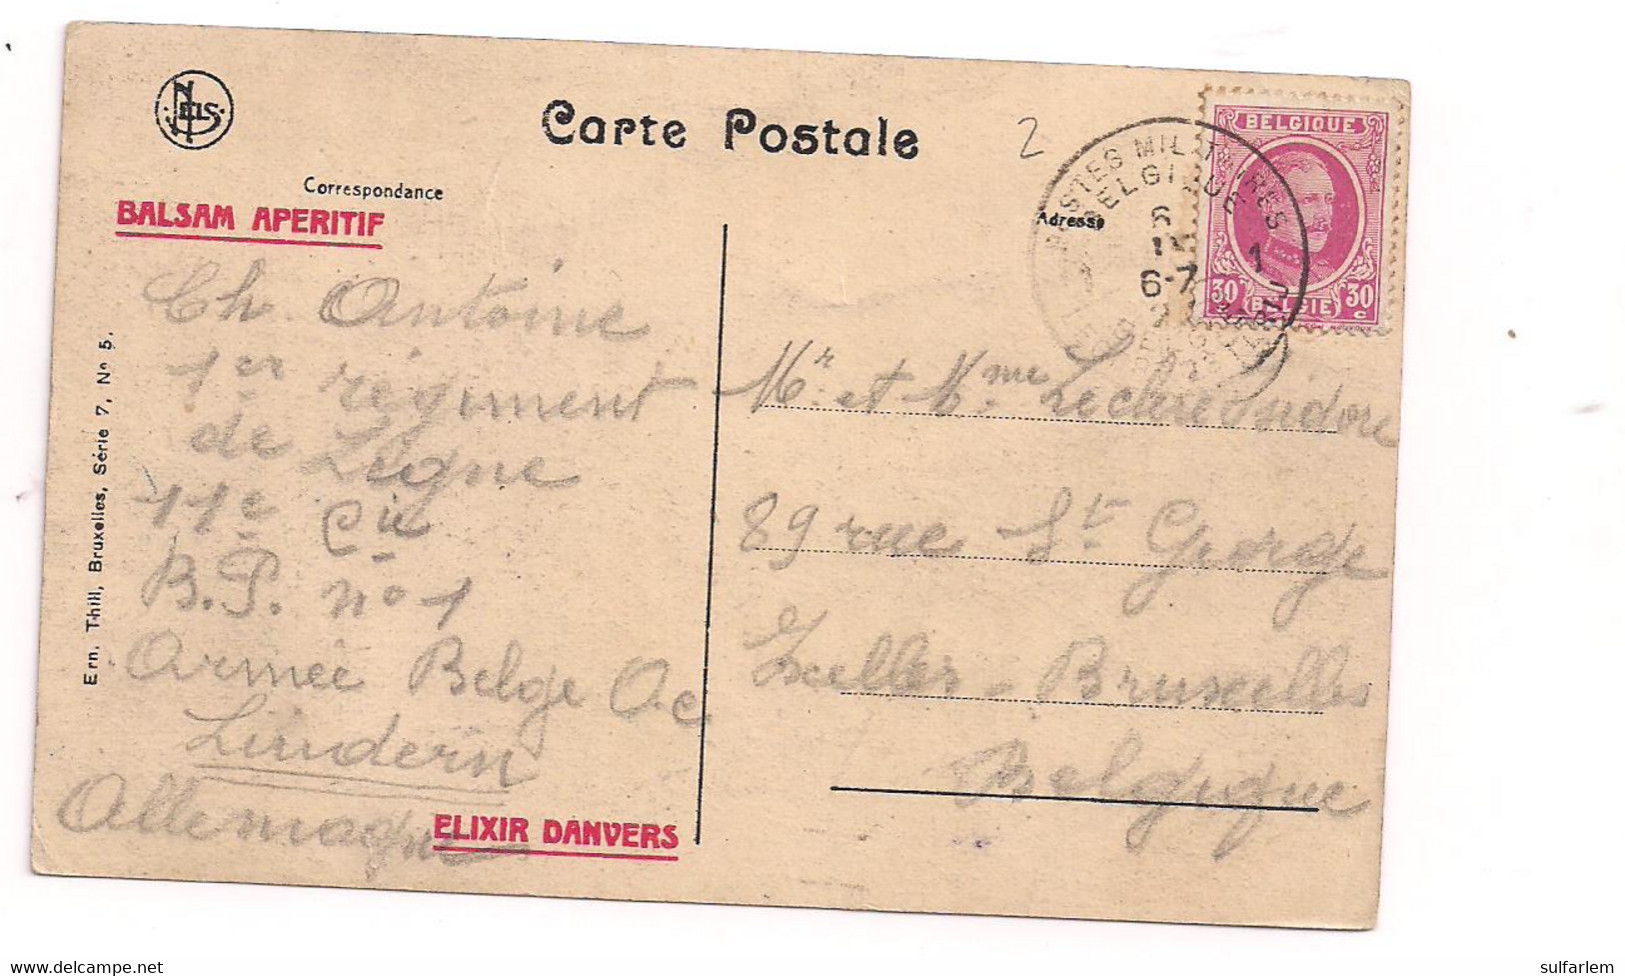 NELS
Carte Postale
2
Correspondance
BALSAM APERITIF
Adresse
POSTES MILITAIRES
BELGIQUE
6
6-7
1
1
BELGIQUE
30 30
BELGIË
Ch Antoine
1er régiment
de Ligne
11e Cie
B.P. no 1
Armée Belge O.c
Lindern
Allemagne
ELIXIR DANVERS
Mr. et Mme
89 rue St George
Ixelles - Bruxelles
Belgique
Ern. Thill, Bruxelles, Série 7, No 5.
delcampe.net
sulfarlem